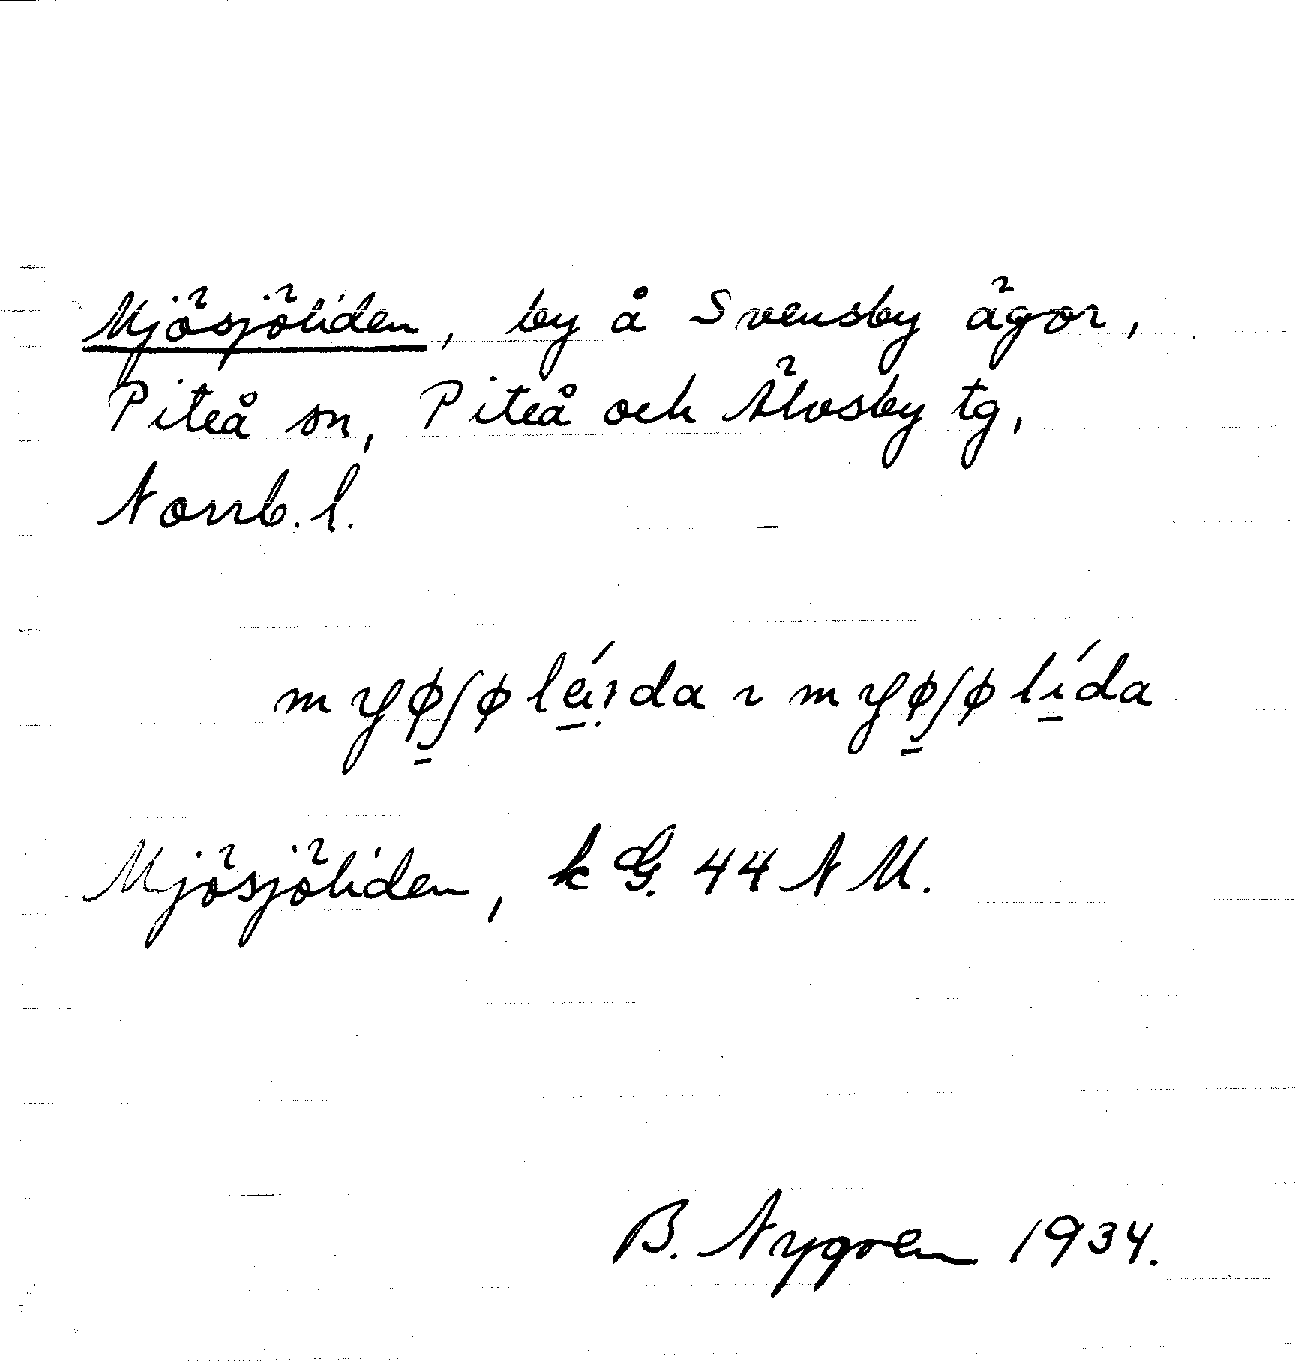 Mjösjöliden, by å Svensby ägor,
Piteå sn, Piteå och Älvsby tg,
Norrb. l.
Mjösjöliden, k G. 44 N M.
B. Nygren 1934.